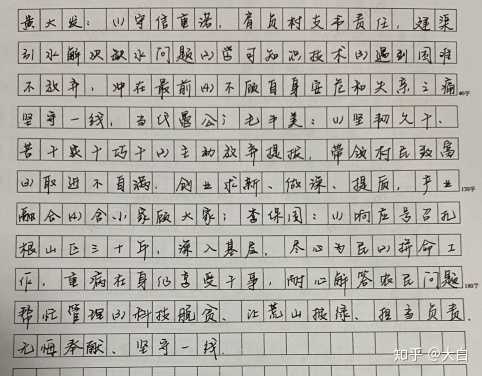 黄大发：(1)守信重诺，有负村支书责任，建渠
引水解决缺水问题(2)学可知识技术(3)遇到困难
不放弃，冲在最前(4)不顾自身安危和失亲之痛
80字
坚守一线，当代愚公；毛平美：(1)坚韧久干、
苦干实干巧干(2)主动放弃提拔，带领村民致富
(3)取进不自满，创业求新、做深、提质，产业
130字
融合(4)舍小家顾大家；李保国：(1)响应号召扎
根山区三十年，深入基层，尽心为民(2)拼命工
作，重病在身仍享受干事，耐心解答农民问题
180字
帮忙管理(3)科技脱贫、让荒山披绿、担当负责、
无悔奉献、坚守一线.
知乎 @大白